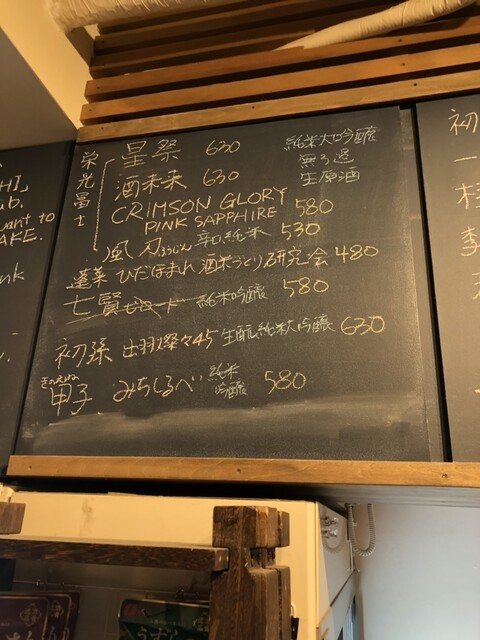 HI,
ub.
want to
AKE.
nk
栄光冨士
星祭 630
純米大吟醸
無ろ過
生原酒
酒未来 630
CRIMSON GLORY
PINK SAPPHIRE 580
風刃 ふうじん 辛口純米 530
蓬莱 ひだほまれ 酒米づくり研究会 480
七賢 純米吟醸 580
初孫 出羽燦々45 生酛純米大吟醸 630
きのえね
甲子 みちしるべ 純米吟醸 580
初
一
李